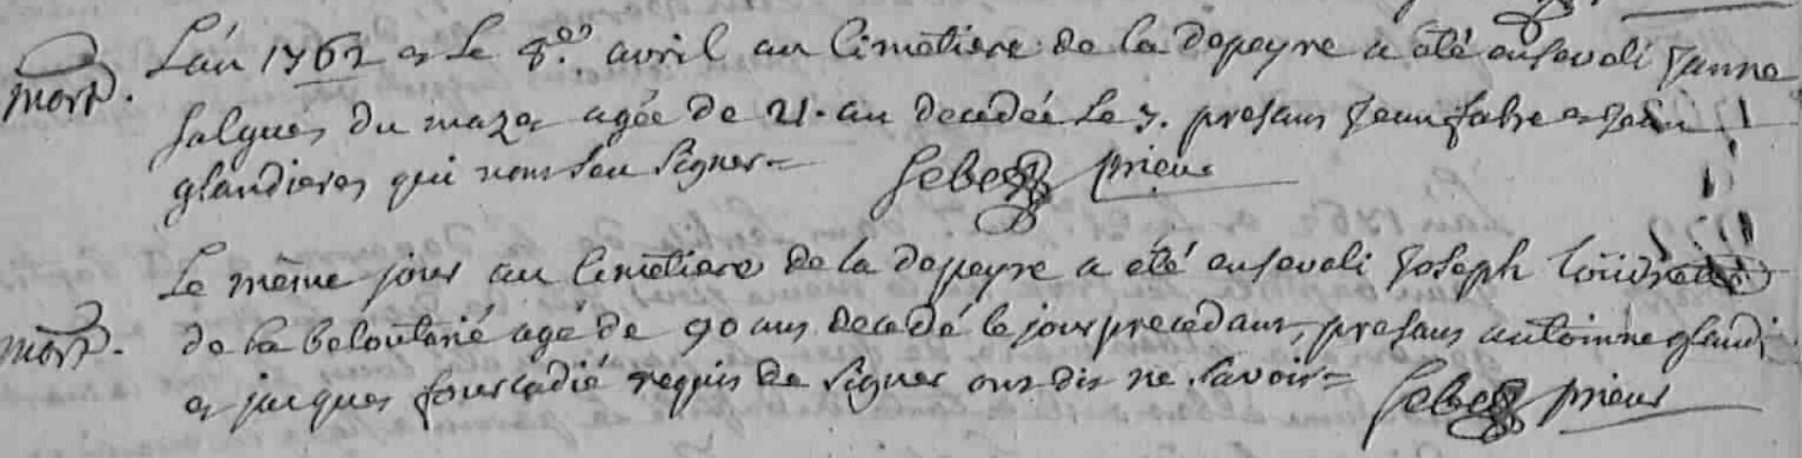 L'an 1762 et le 8.e avril au cimétiere de la Dopeyre a été enseveli Janne
mort.
Salgues du mazet agée de 21. an decedée le 7. presans Jean fabre et Jean
glandieres qui nont seu signer =     prieur
Le même jour au Cimétiere de la dopeyre a été enseveli Joseph
mort.
de la beloutarié agé de 90 ans decedé le jour precedant, presans antoinne glandi
et jacques fourcadié requis de signer ont dit ne savoir =     prieur